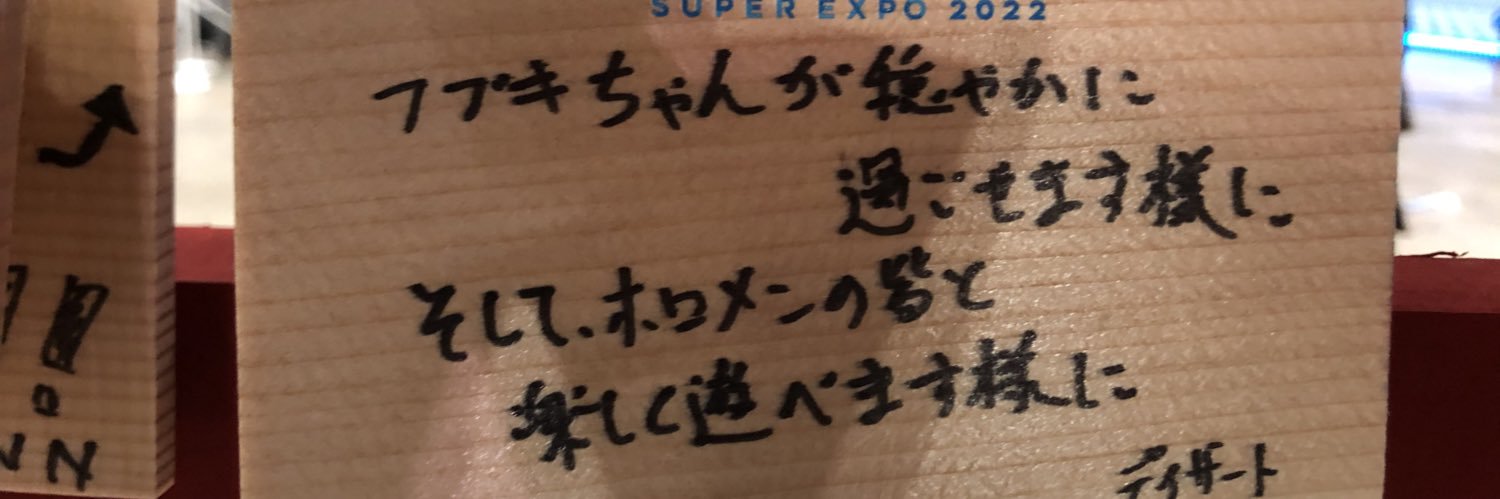 SUPER EXPO 2022
フブキちゃんが穏やかに
過ごせます様に
そして、ホロメンの皆と
楽しく遊べます様に
ディザート